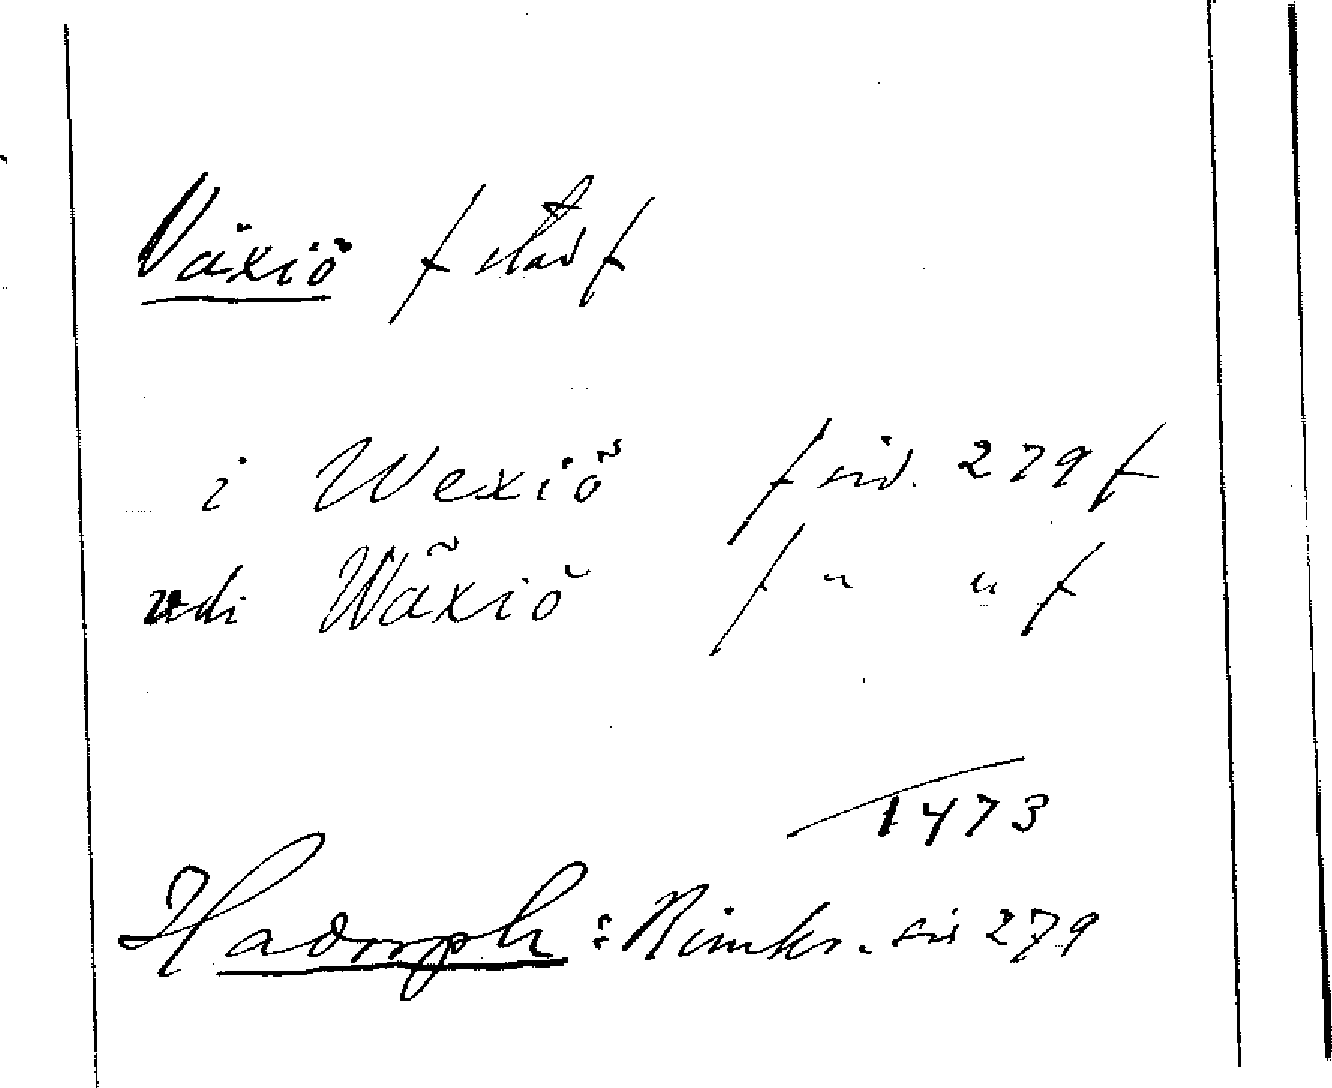 Växiö / stad /
i Wexiö / sid. 279 /
udi Wäxiö / " " /
1473
Hadorph: Rimkr. sid 279